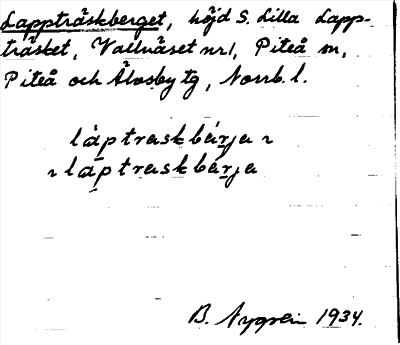 Lappträskberget, höjd S. Lilla Lapp-
träsket, Vallnäset nr 1, Piteå sn,
Piteå och Älvsby tg, Norrb. l.
làptraskbárja ~
~ láptraskbárja
B. Nygren 1934.